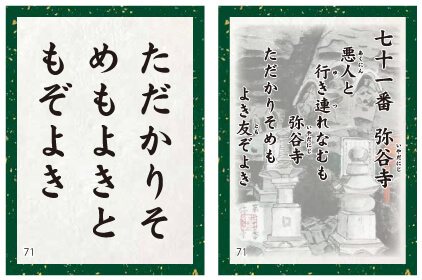 ただかりそ
めもよきと
もぞよき
71
七十一番 弥谷寺
いやだにじ
悪人と
あくにん
行き連れなむも
ゆ つ
弥谷寺
いやだにじ
ただかりそめも
よき友ぞよき
とも
71